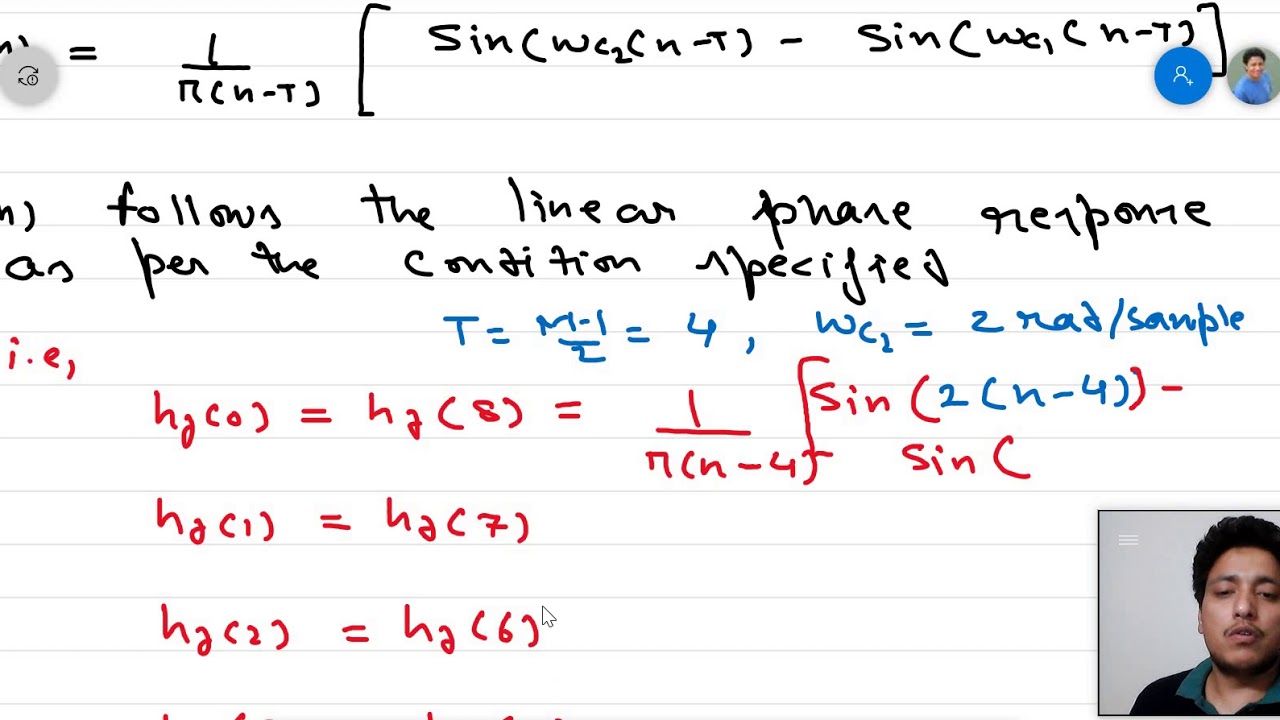 n) = 1/π(n-T) [ Sin(wc₂(n-T) - Sin(wc₁(n-T) ]
n) follows the linear phase response
as per the condition specified
T = M-1/2 = 4, wc₂ = 2 rad/sample
i.e,
hd(0) = hd(8) = 1/π(n-4) [ Sin(2(n-4)) -
Sin(
hd(1) = hd(7)
hd(2) = hd(6)